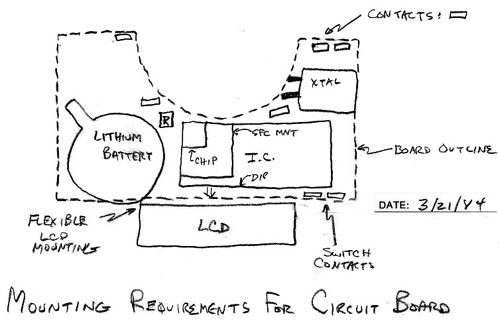 CONTACTS:
XTAL
R
LITHIUM
BATTERY
SFC MNT
CHIP
I.C.
DIP
BOARD OUTLINE
DATE: 3/21/44
FLEXIBLE
LCD
MOUNTING
LCD
SWITCH
CONTACTS
MOUNTING REQUIREMENTS FOR CIRCUIT BOARD